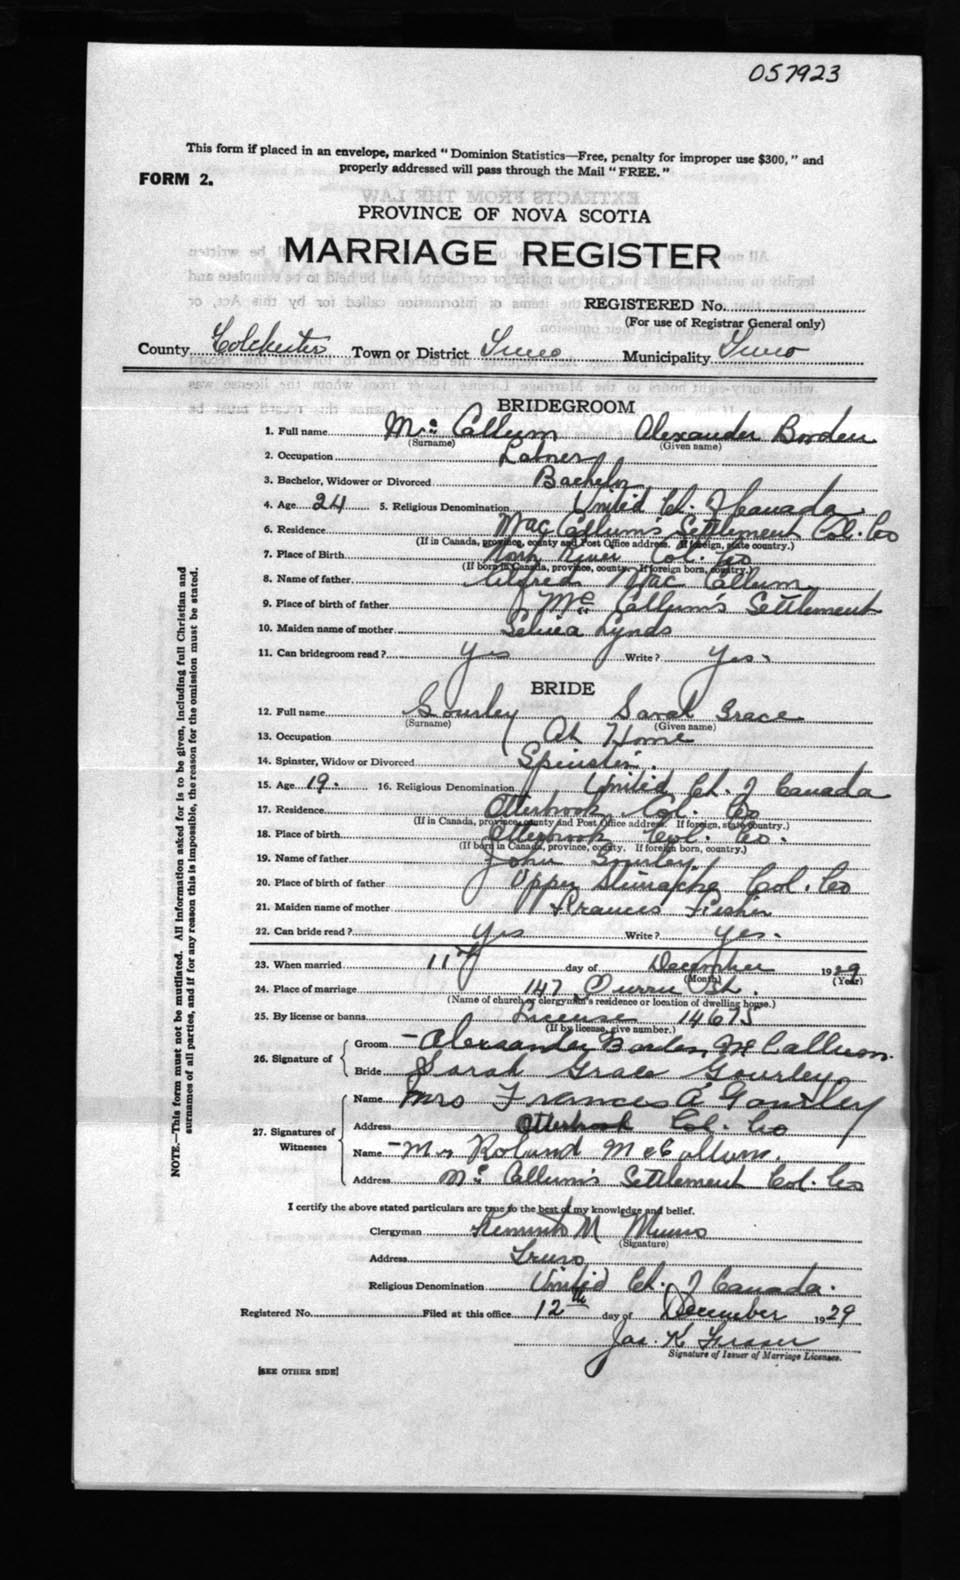 057923
This form if placed in an envelope, marked "Dominion Statistics—Free, penalty for improper use $300," and
properly addressed will pass through the Mail "FREE."
FORM 2.
PROVINCE OF NOVA SCOTIA
MARRIAGE REGISTER
REGISTERED No.
(For use of Registrar General only)
County Colchester Town or District Truro Municipality Truro
BRIDEGROOM
1. Full name Mc Callum Alexander Borden
(Surname) (Given name)
2. Occupation Laborer
3. Bachelor, Widower or Divorced Bachelor
4. Age 24 5. Religious Denomination United Ch. of Canada
6. Residence MacCallum's Settlement Col. Co
(If in Canada, province, county and Post Office address. If foreign, state country.)
7. Place of Birth North River Col. Co
(If born in Canada, province, county. If foreign born, country.)
8. Name of father Mac Callum
9. Place of birth of father Mc Callum's Settlement
10. Maiden name of mother Lynds
11. Can bridegroom read? yes Write? yes.
BRIDE
12. Full name Gourley Sarah Grace
(Surname) (Given name)
13. Occupation At Home
14. Spinster, Widow or Divorced Spinster.
15. Age 19. 16. Religious Denomination United Ch. of Canada
17. Residence Otterbrook Col. Co
(If in Canada, province, county and Post Office address. If foreign, state country.)
18. Place of birth Otterbrook Col. Co.
(If born in Canada, province, county. If foreign born, country.)
19. Name of father John Gourley
20. Place of birth of father Upper Stewiacke Col. Co
21. Maiden name of mother Frances Fisher
22. Can bride read? yes Write? yes.
23. When married 11th day of December 1929
(Month) (Year)
24. Place of marriage 147 St.
(Name of church or clergyman's residence or location of dwelling house.)
25. By license or banns License 14675
(If by license, give number.)
26. Signature of Groom Alexander Borden McCallum.
Bride Sarah Grace Gourley
27. Signatures of Witnesses Name Mrs Frances A Gourley
Address Otterbrook Col. Co
Name Mr Roland McCallum.
Address Mc Callum's Settlement Col. Co
I certify the above stated particulars are true to the best of my knowledge and belief.
Clergyman Kenneth M Munro
(Signature)
Address Truro
Religious Denomination United Ch. of Canada.
Registered No. Filed at this office 12th day of December 1929
Jas. K Fraser
Signature of Issuer of Marriage Licenses.
[SEE OTHER SIDE]
NOTE.—This form must not be mutilated. All information asked for is to be given, including full Christian and
surnames of all parties, and if for any reason this is impossible, the reason for the omission must be stated.